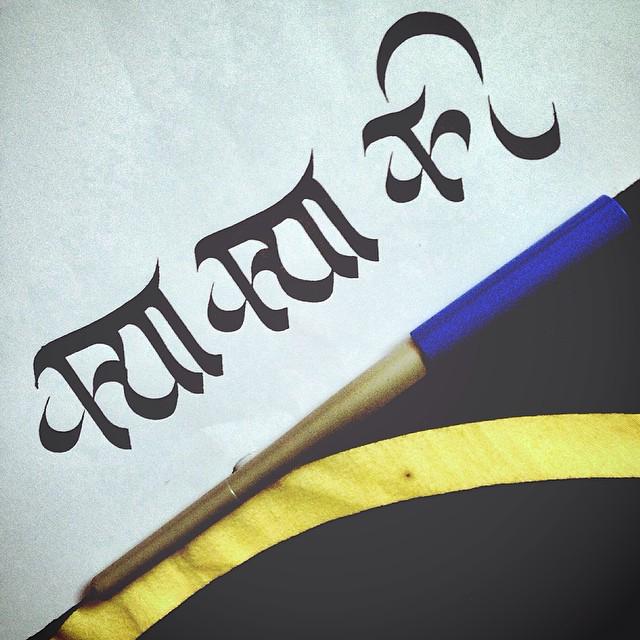 क्या क्या की